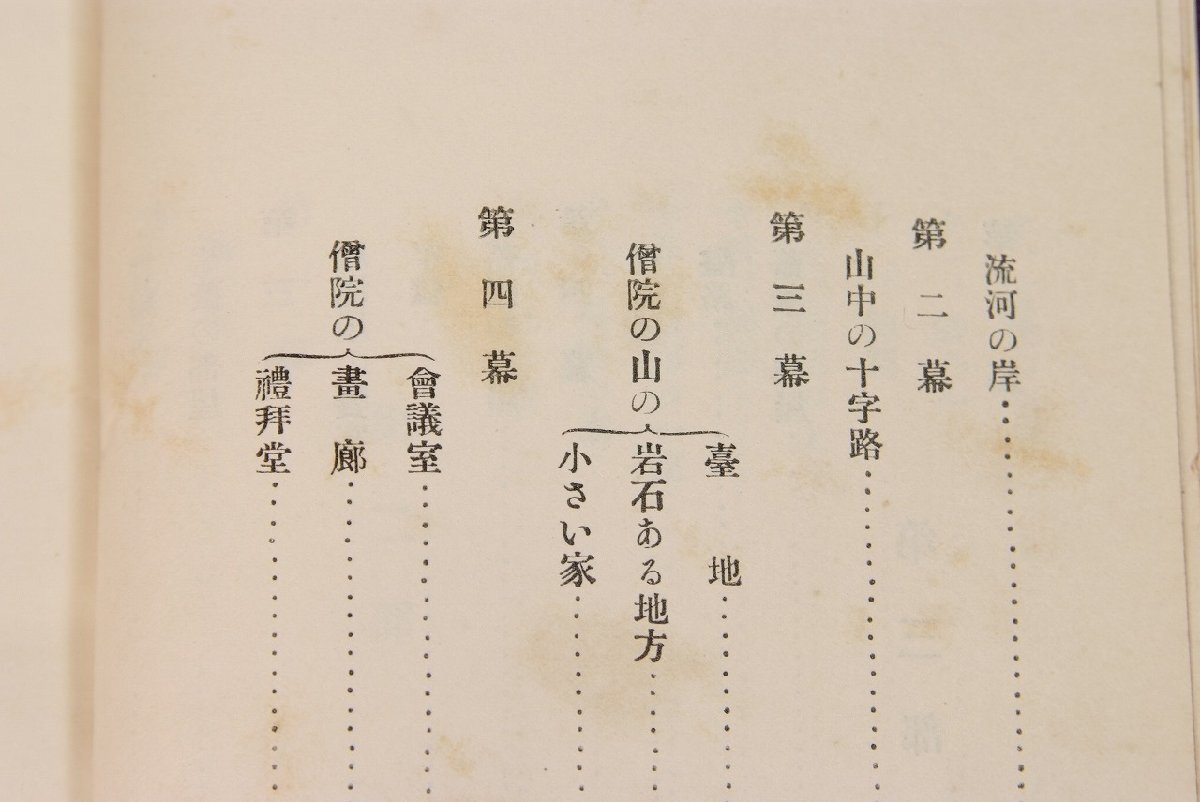 流河の岸……………………
第二幕
山中の十字路………………
第三幕
僧院の山の
臺地…………
岩石ある地方……
小さい家…………
第四幕
僧院の
會議室………………
畫廊………………
禮拜堂………………